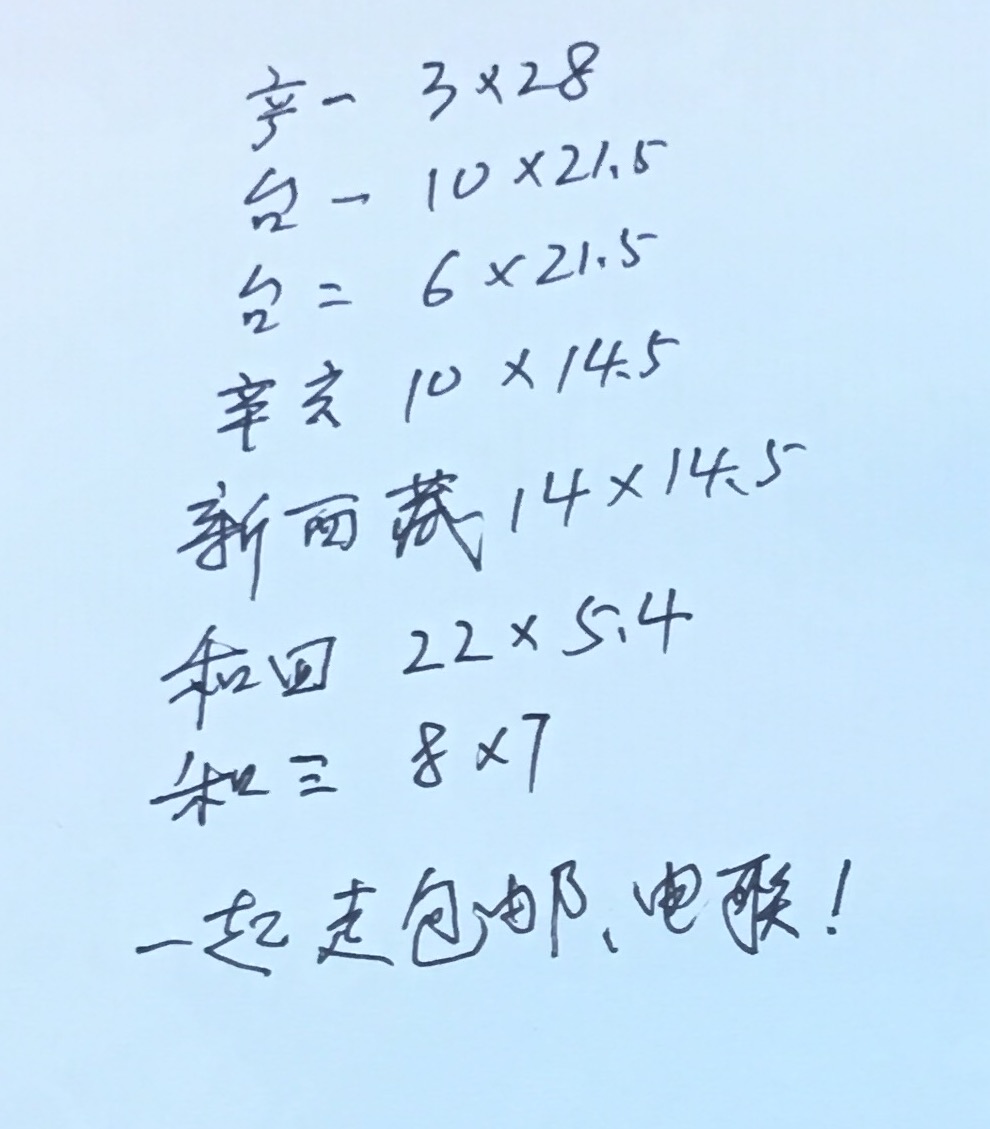 一 3×28
台一 10×21.5
台二 6×21.5
辛亥 10×14.5
新西藏 14×14.5
和四 22×5.4
和三 8×7
一起走包邮、电联!